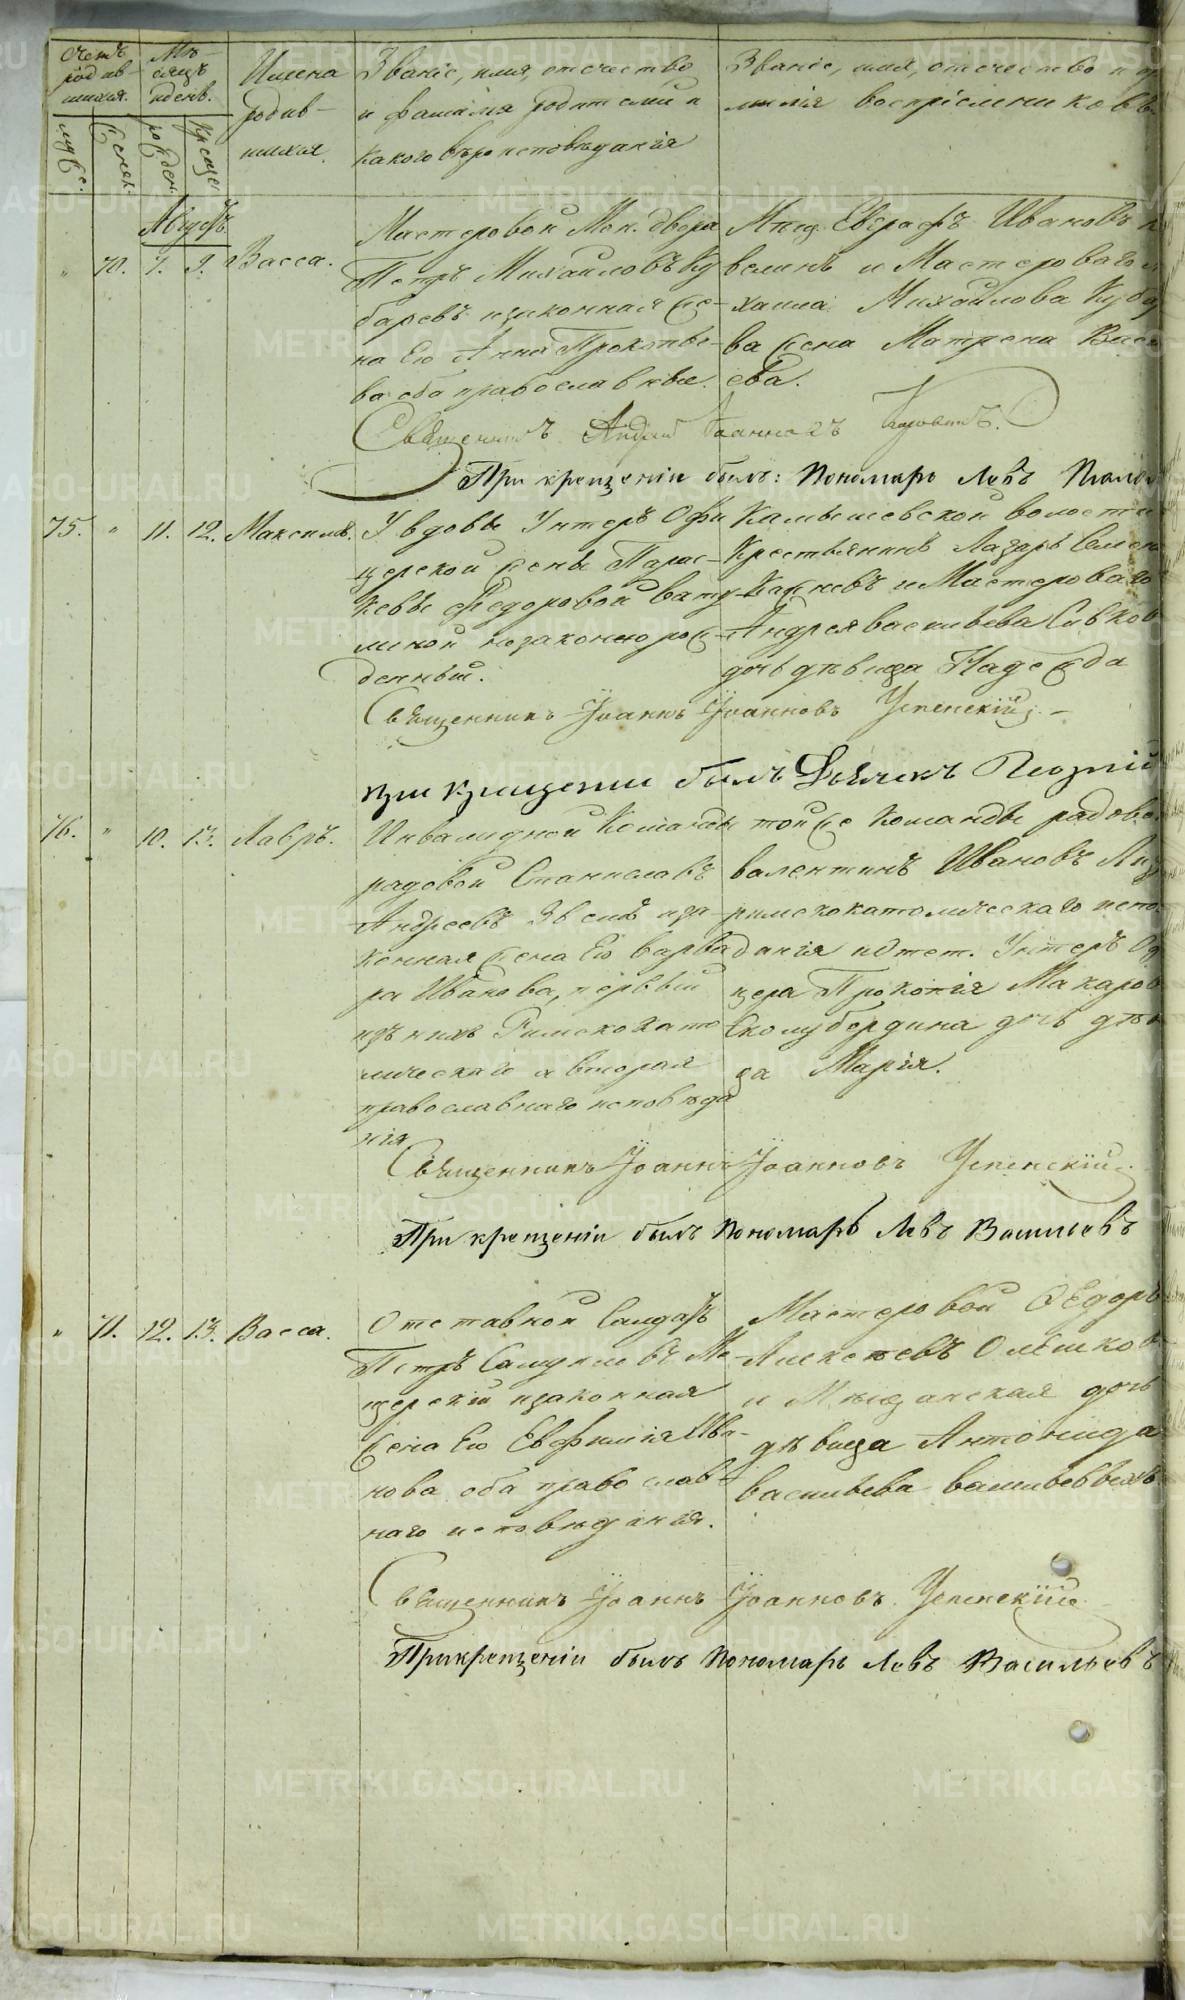 Счетъ родив- шихся.
Мѣ- сяцъ и день.
Имена родив- шихся.
Званіе, имя, отечество и фамилія родителей и какого вѣроисповѣданія
Званіе, имя, отечество и фа- милія воспріемниковъ.
муже. женск. рожден. креще.
Августъ.
" 70. 7. 9. Васса.
Мастеровой Мон. двора
Петръ Михайловъ Ку
баревъ и законная же-
на его Анна Прокопье-
ва оба православные.
Евграфъ Ивановъ и
и Мастероваго
хаила Михайлова Кубар
ва жена Матрена
ева.
Священникъ Андрей Іоанновъ
При крещеніи былъ: Пономарь Левъ
75. " 11. 12. Максимъ.
У вдовы Унтеръ Офи
церской жены Парас-
кевы Федоровой
незаконнорож-
денный.
Камышевской волости
Крестьянинъ Лазарь
и Мастероваго
Андрея Васильева Сивков
дочь дѣвица Надежда
Священникъ Іоаннъ Іоанновъ Успенскій.
при крещеніи былъ Дьячекъ Георгій
76. " 10. 13. Лавръ.
Инвалидной Команды
рядовой Станиславъ
Андреевъ и за
конная жена его Варва
ра Иванова, первый
изъ нихъ Римскокато
лическаго а вторая
православнаго исповѣда
нія
той же команды рядово
Валентинъ Ивановъ
римскокатолическаго испо-
данія и Отст. Унтеръ Оф
цера Прокопія Макаров
Сколубердина дочь дѣв
ца Марія.
Священникъ Іоаннъ Іоанновъ Успенскій.
При крещеніи былъ Пономарь Левъ Васильевъ
" 71. 12. 13. Васса.
Отставной Солдатъ
Петръ Ме-
щерскій и законная
жена его Евфимія Ива-
нова оба православ-
наго исповѣданія.
Мастеровой Федоръ
Алексѣевъ
и Мѣщанская дочь
дѣвица Антонида
Васильева
Священникъ Іоаннъ Іоанновъ Успенскій
При крещеніи былъ Пономарь Левъ Васильевъ
METRIKI.GASO-URAL.RU